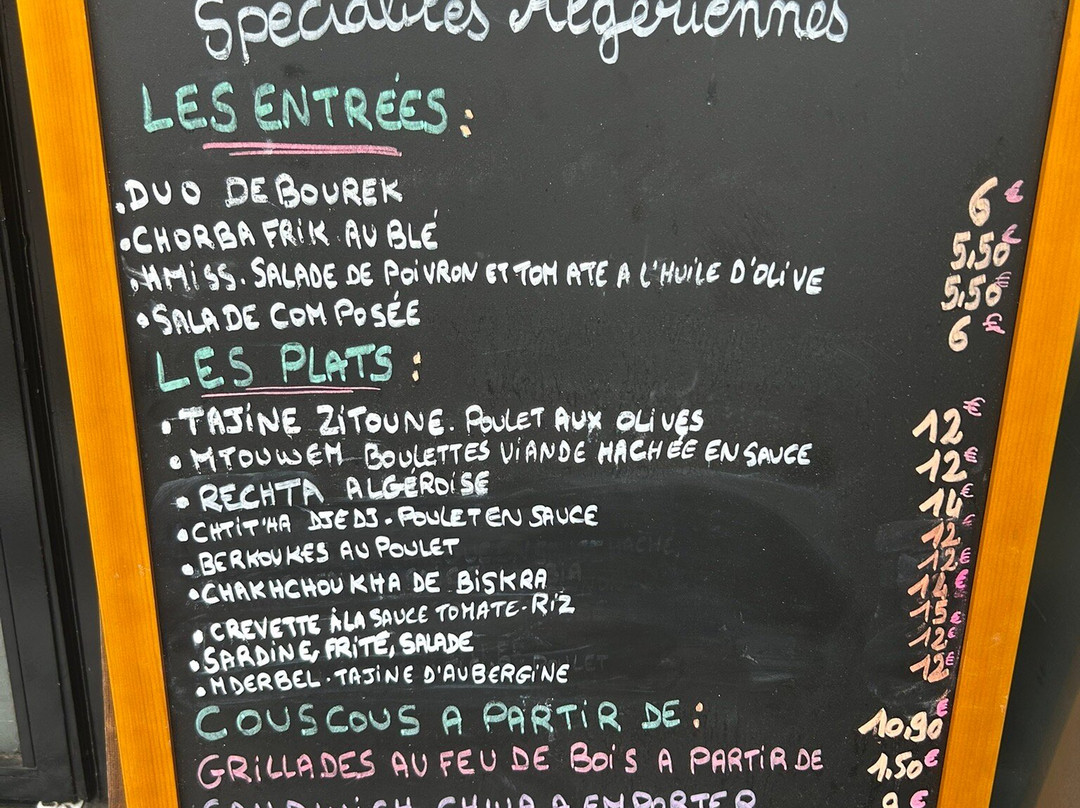 Spécialités Algériennes
LES ENTRÉES :
• DUO DE BOUREK 6 €
• CHORBA FRIK AU BLÉ 5,50 €
• HMISS. SALADE DE POIVRON ET TOMATE A L'HUILE D'OLIVE 5,50 €
• SALADE COMPOSÉE 6 €
LES PLATS :
• TAJINE ZITOUNE. POULET AUX OLIVES 12 €
• MTOUWEM BOULETTES VIANDE HACHÉE EN SAUCE 12 €
• RECHTA ALGÉROISE 14 €
• CHTIT'HA DJEDJ. POULET EN SAUCE 12 €
• BERKOUKES AU POULET 12 €
• CHAKHCHOUKHA DE BISKRA 14 €
• CREVETTE À LA SAUCE TOMATE-RIZ 15 €
• SARDINE, FRITE, SALADE 12 €
• MDERBEL. TAJINE D'AUBERGINE 12 €
COUSCOUS A PARTIR DE : 10,90 €
GRILLADES AU FEU DE BOIS A PARTIR DE 1,50 €
A EMPORTER €